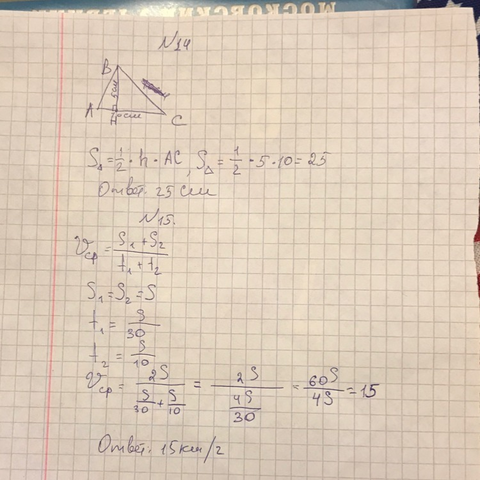 МОСКОВСКИ
N14
B
5см
A
H
10см
C
S△ = 1/2 · h · AC, S△ = 1/2 · 5 · 10 = 25
Ответ. 25 см
N15.
V ср = (S₁ + S₂)/(t₁ + t₂)
S₁ = S₂ = S
t₁ = S/30
t₂ = S/10
V ср = 2S/(S/30 + S/10) = 2S/(4S/30) = 60S/4S = 15
Ответ. 15 км/г